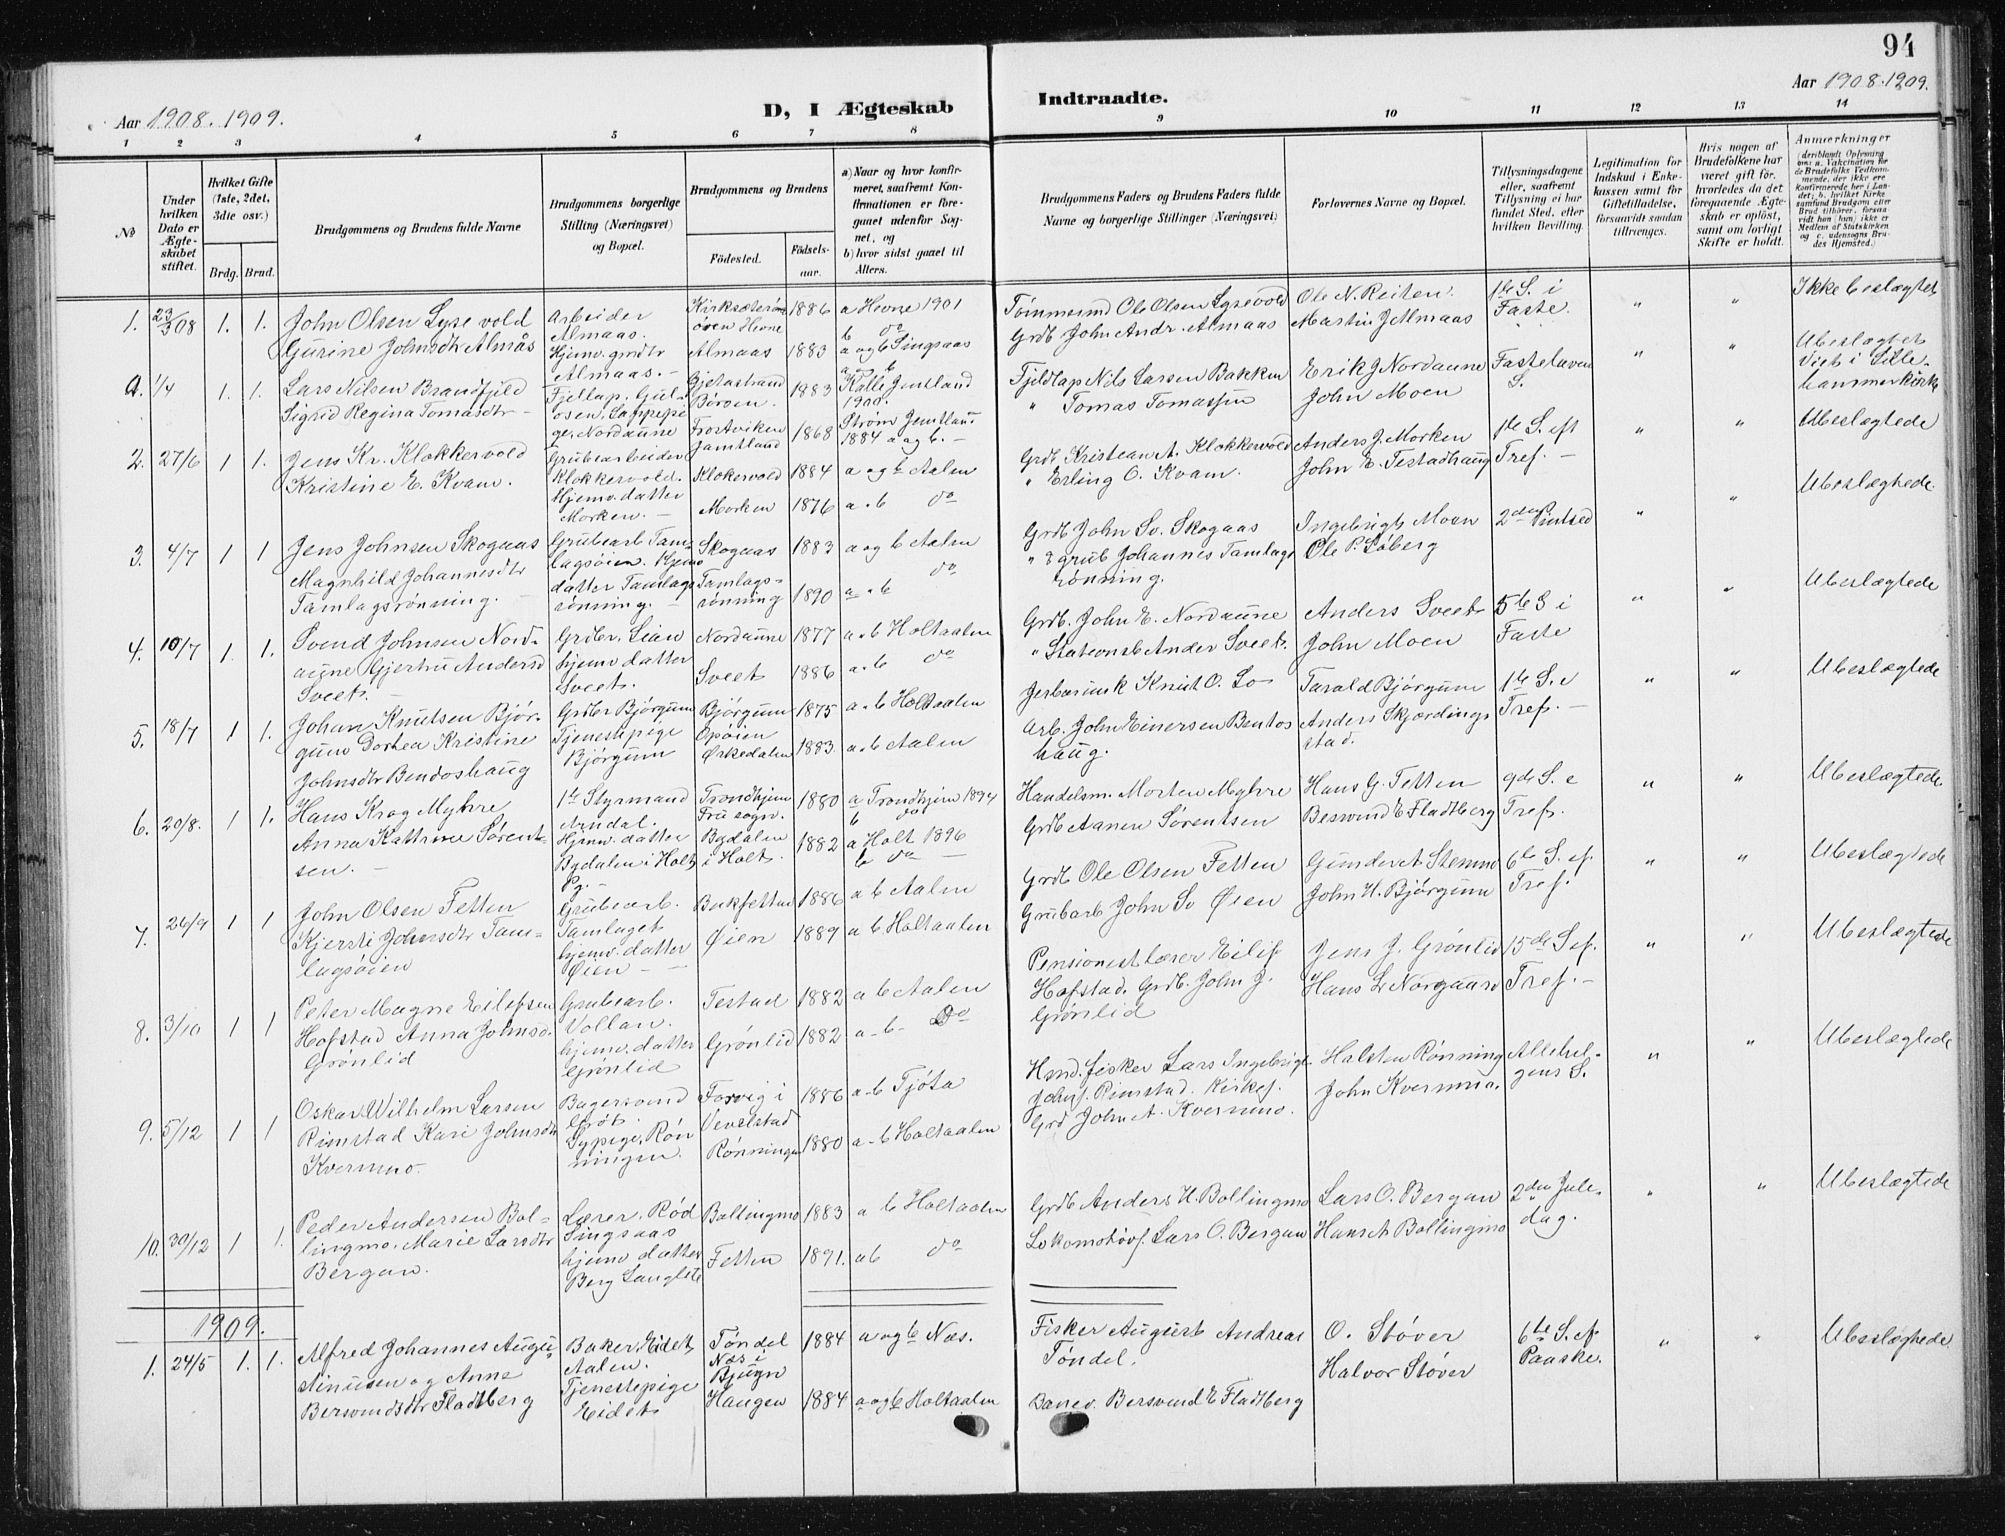 94
Aar 1908. 1909.
D, I Ægteskab
Indtraadte.
Aar 1908. 1909.
1 2 3 4 5 6 7 8 9 10 11 12 13 14
No
Under hvilken Dato er Ægteskabet stiftet.
Hvilket Gifte (1ste, 2det, 3die osv.)
Brdg. Brud.
Brudgommens og Brudens fulde Navne
Brudgommens borgerlige Stilling (Næringsvei) og Bopæl.
Brudgommens og Brudens
Födested. Födsels-aar.
a) Naar og hvor konfirmeret, saafremt Konfirmationen er foregaaet udenfor Sognet, og
b) hvor sidst gaaet til Alters.
Brudgommens Faders og Brudens Faders fulde Navne og borgerlige Stillinger (Næringsvei)
Forlovernes Navne og Bopæl.
Tillysningsdagene eller, saafremt Tillysning ei har fundet Sted, efter hvilken Bevilling.
Legitimation for Indskud i Enkekassen samt for Giftetilladelse, forsaavidt saadan tiltrænges.
Hvis nogen af Brudefolkene har været gift för, hvorledes da det foregaaende Ægteskab er oplöst, samt om lovligt Skifte er holdt.
Anmærkninger (deriblandt Oplysning om: a. Vakcination for de Brudefolks Vedkommende, der ikke ere konfirmerede her i Landet; b. hvilket Kirkesamfund Brudgom eller Brud tilhörer, forsaavidt han (hun) ikke er Medlem af Statskirken og c. udensogns Brudes Hjemsted.)
1. 23/3 08 1. 1. John Olsen Lysevold Arbeider Almaas. Kirksæterøren Hevne 1886 a Hevne 1901 b do Tømmermd Ole Olsen Lysevold Ole N. Reiten. 1ste S. i Faste. " " Ikke beslægtet
Gurine Johnsdtr Almås Hjemv. grdtr Almaas. - Almaas 1883 a og b Singsaas Grdb John Andr. Almaas Martin J Almaas
a. 1/4 1. 1. Lars Nilsen Brandfjeld Fjellap. Gjetastrand Børsen. 1883 Kalls Jemtland 1900. Fjeldlap Nils Larsen Bakken Erik J Nordaune Fastelavens S. " " Ubeslægtet Viet i Lillehammer kirke
Sigrid Regina Tomasdtr - Lappepige, Nordaune Frostviken Jamtland 1868 Strøm Jemtland 1884 a og b. - " Tomas Tomassen John Moen
2. 27/6 1 1. Jens Kr. Klokkervold Grubearbeider Klokkervold. Klokervold 1884 a og b Aalen Grdb Kristean A. Klokkervold Anders J. Morken 1ste S. eft Tref. - " " Ubeslægtede
Kristine E. Kvam. Hjemv. datter Morken. - Morken 1876 a . b do " Erling O. Kvam. John E. Testadhaug
3. 4/7 1 1 Jens Johnsen Skogaas Grubearb Tamlagsøien. Skogaas 1883 a og b Aalen Grdb John Sv. Skogaas Ingebrigt Moan 2den Pintsed " " Ubeslægtede.
Magnhild Johannesdtr Tamlagsrønning. - Hjemv datter Tamlagsrønning. - Tamlagsrønning 1890 a . b do " & grub Johannes Tamlagsrønning. Ole P. Løberg
4. 10/7 1. 1. Svend Johnsen Nordaune Grdbr. Lian Nordaune 1877 a . b Holtaalen Grdb. John E. Nordaune Anders Sveet 5te S i Faste " " Ubeslægtede
Gjertru Andersd Sveet. - hjemv. datter Sveet. Sveet 1886 a . b do " Stationsb Ander Sveet. John Moen
5. 18/7 1 1. Johan Knutsen Bjørgum Grdbr Bjørgum Bjørgum 1875 a . b Holtaalen Knut O. Lo Tarald Bjørgum 1ste S. e Tref. - " " Ubeslægtede
Dorthea Kristine Johnsdtr Bendoshaug Tjenestepige Bjørgum Opøien Ørkedalen 1883. a . b Aalen Arb. John Einersen Bentoshaug. Anders Skjærdingstad.
6. 20/8. 1 1. Hans Krag Myhre 1ste Styrmand Arndal. Trondhjem Frue sogn. 1880 a Trondhjem 1894 b do Handelsm. Morten Myhre Hans G. Fetten 9de S. e Tref. " " Ubeslægtede
Anna Kathrine Sørentsen. - Hjemv. datter Bydalen i Holt Pg. - Bydalen i Holt. 1882 a Holt 1896 b do - Grdb Aanen Sørentsen Berswend E Fladtberg
7. 26/9 1 1 John Olsen Fetten Grubearb. Tamlaget 1886 a b Aalen Grdb Ole Olsen Fetten 6te S. ef. Tref. " " Ubeslægtede
Kjersti Johnsdtr Tamlagsøien hjemv. datter Øien - - Øien 1889 a b Holtaalen Grubarb John Sv Øien John H. Bjørgum
8. 3/10 1 1 Peter Magne Eilefsen Hofstad Grubearb. Vollan. Testad 1882 a b Aalen Pensionest lærer Eilif Hofstad. Jens J. Grønlid 15de S. ef. Tref. - " " Ubeslægtede
Anna Johnsd. Grønlid hjemv. datter Grønlid Grønlid 1882 a . b - Do Grdb. John J. Grønlid Hans L Norgaard
9. 5/12 1 1 Oskar Wilhelm Larsen Rimstad Bagersvend Forvig i Vevelstad 1886 a . b Tjøta Hmd. fisker Lars Ingebrigt Johs. Rimstad. Halsten Rønning Allehelgens S. " " Ubeslægtede
Kari Johnsdtr Kvernmo. Sypige, Rønningen. Rønningen 1880 a . b Holtaalen Grd John A. Kvernmo. John Kvernmo.
10. 30/12 1 1. Peder Andersen Bollingmo. Lærer, Rød Singsaas Bollingmo 1883 a b Holtaalen Grdb Anders H. Bollingmo Lars O. Bergan 2den Juledag. " " Ubeslægtede
Marie Larsdtr Bergan. hjemv datter Berg Langlete Fetten 1891. a b do Lokomotivf. Lars O. Bergan Hans A Bollingmo
1909.
1. 24/5 1. 1. Alfred Johannes Augustinusen og Baker, Eidet Aalen. Tøndel Næs i Bjugn 1884 a og b Næs. Fisker August Andreas Tøndel. O. Støver 6te S. ef Paaske. " " Ubeslægtede
Anne Berswendsdtr Fladtberg Tjenestepige Eidet Haugen 1884 a og b Holtaalen Banev. Berswend E Fladtberg Halvor Støver